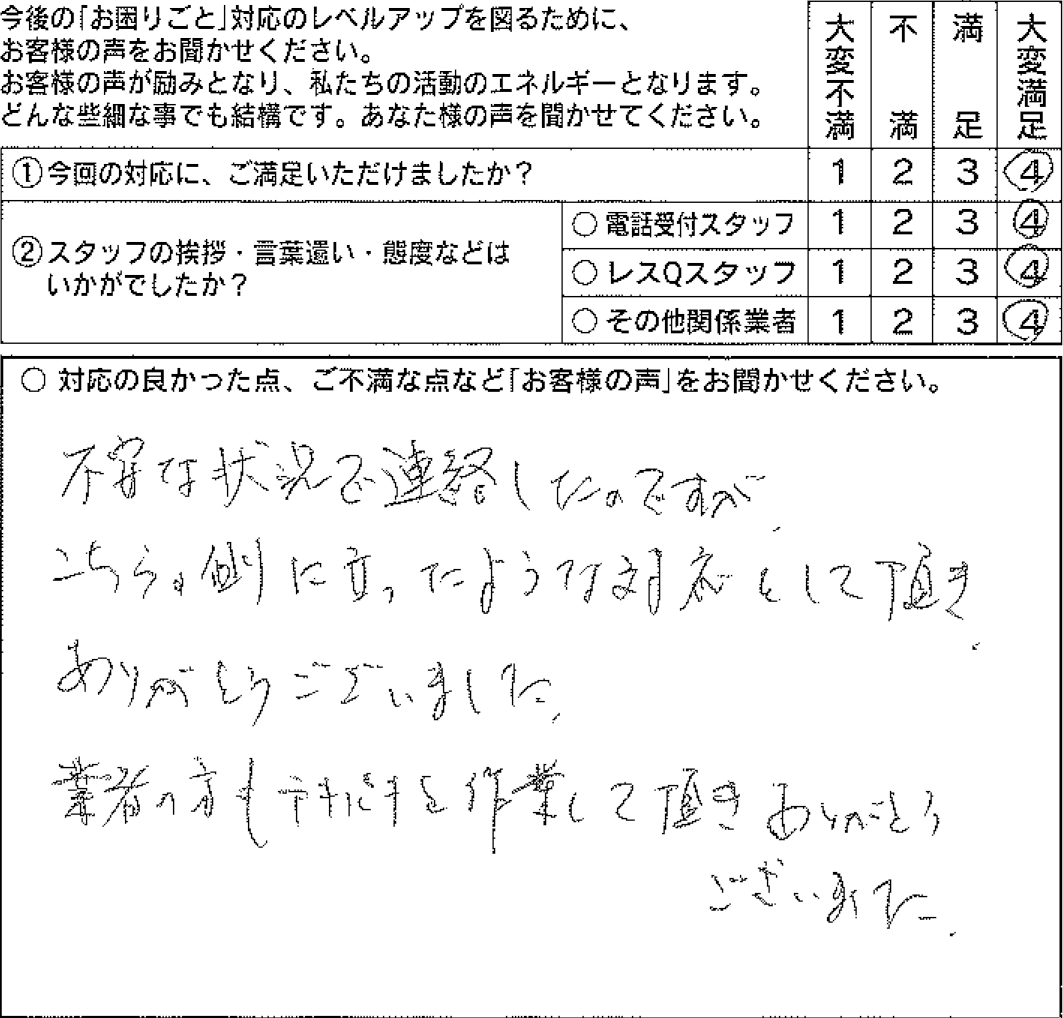 今後の「お困りごと」対応のレベルアップを図るために、
お客様の声をお聞かせください。
お客様の声が励みとなり、私たちの活動のエネルギーとなります。
どんな些細な事でも結構です。あなた様の声を聞かせてください。
大変不満 不満 満足 大変満足
①今回の対応に、ご満足いただけましたか? 1 2 3 4
②スタッフの挨拶・言葉遣い・態度などは
いかがでしたか?
○ 電話受付スタッフ 1 2 3 4
○ レスQスタッフ 1 2 3 4
○ その他関係業者 1 2 3 4
○ 対応の良かった点、ご不満な点など「お客様の声」をお聞かせください。
不安な状況で連絡したのですが、
こちらの側に立ったような対応をして頂き、
ありがとうございました。
業者の方もテキパキと作業して頂きありがとう
ございました。